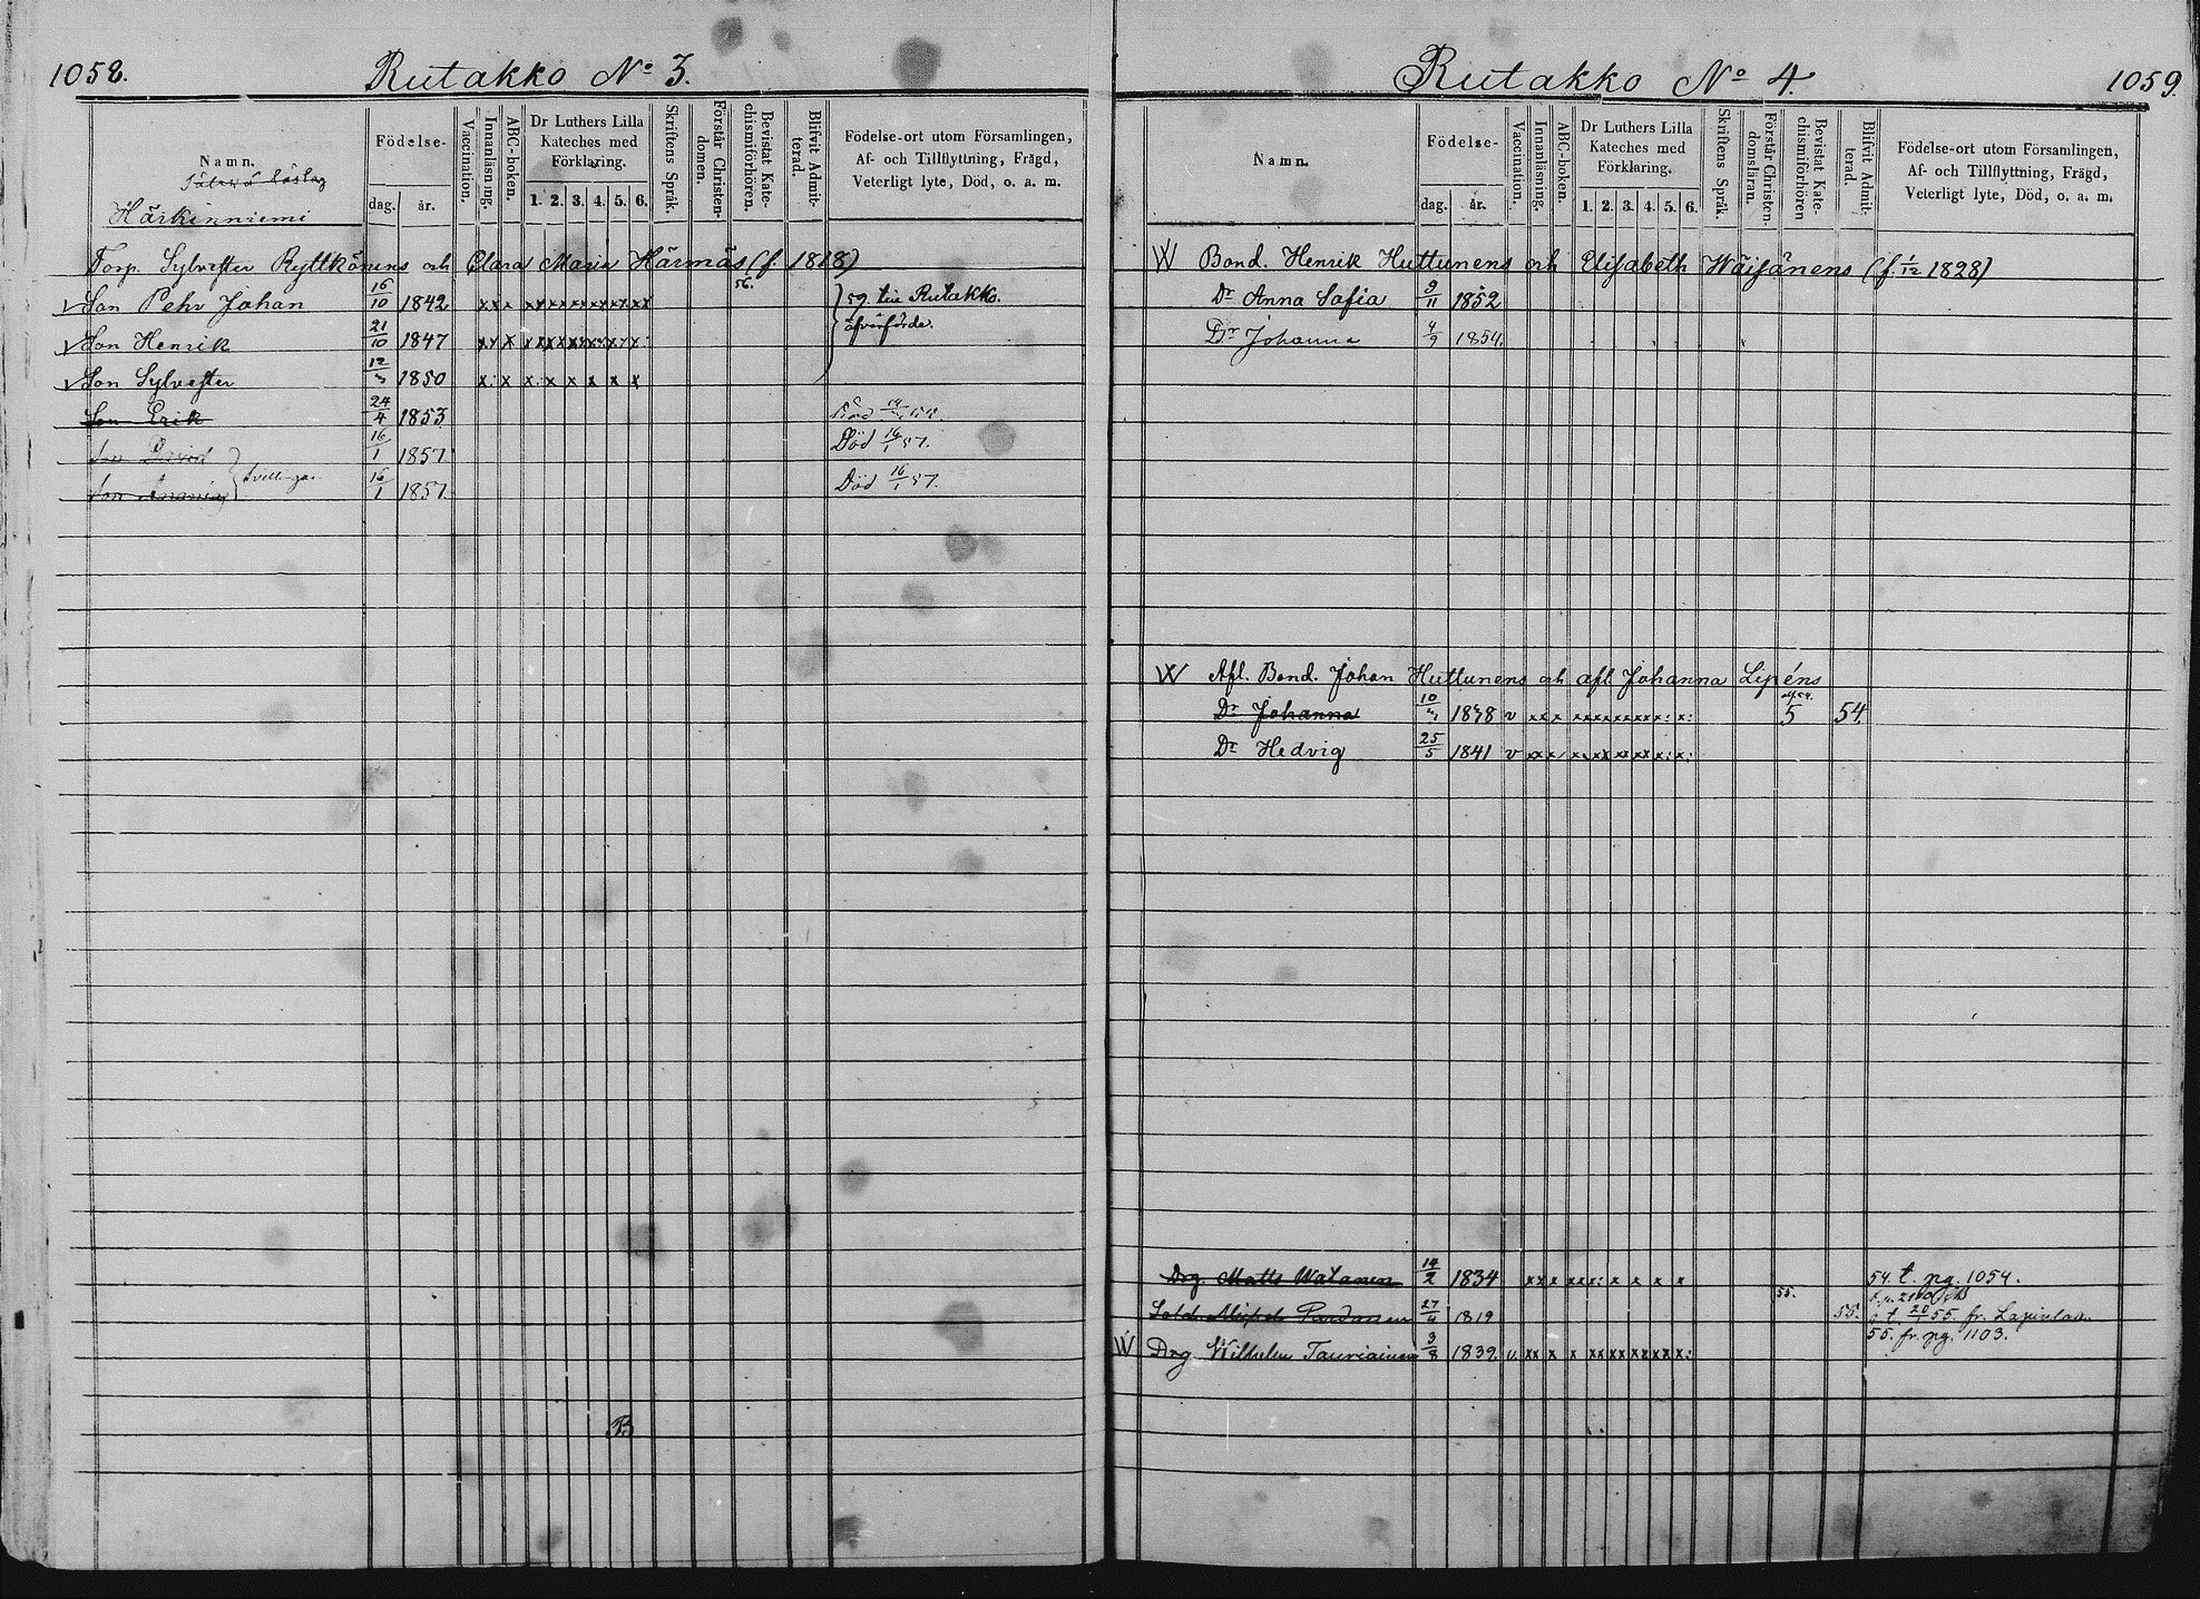 1058.
Rutakko No 3.
Namn.
Härkinniemi
Födelse-
dag.
år.
Vaccination.
Innanläsning.
ABC-boken.
Dr Luthers Lilla
Kateches med
Förklaring.
1. 2. 3. 4. 5. 6.
Skriftens Språk.
Förstår Christen-
domen.
Bevistat Kate-
chismiförhören.
Blifvit Admit-
terad.
Födelse-ort utom Församlingen,
Af- och Tillflyttning, Frägd,
Veterligt lyte, Död, o. a. m.
Torp. Sylvester Ryttkönens och Clara Maria Härmäs (f. 1818)
56.
v Son Pehr Johan 16/10 1842 x x x x x x x x x x x x x 59. till Rutakko.
öfverförde.
v Son Henrik 21/10 1847 x x x x x x x x x x x x x
v Son Sylvester 12/3 1850 x: x x x x x x x
Son Erik 24/4 1853 Död
Son David 16/1 1857 Död 16/1 57.
tvillingar
Son 16/1 1857 Död 16/1 57.
1059.
Rutakko No 4.
Namn.
Födelse-
dag.
år.
Vaccination.
Innanläsning.
ABC-boken.
Dr Luthers Lilla
Kateches med
Förklaring.
1. 2. 3. 4. 5. 6.
Skriftens Språk.
Förstår Christen-
domsläran.
Bevistat Kate-
chismiförhören
Blifvit Admit-
terad.
Födelse-ort utom Församlingen,
Af- och Tillflyttning, Frägd,
Veterligt lyte, Död, o. a. m.
W Bond. Henrik Huttunens och Elisabeth Wäisänens (f. 1/12 1828)
Dr Anna Sofia 9/11 1852
Dr Johanna 4/9 1854.
W Afl. Bond. Johan Huttunens och afl. Johanna Lipéns
Dr Johanna 10/3 1838 v x x x x x x x x x x x x: x: 5 54.
Dr Hedvig 25/5 1841 v x x x x x x x x x x x x: x:
Drg. Matts Watanen 14/2 1834 x x x x x x: x x x x 54. t. pg. 1054.
55.
Sold. 27/4 1819 55. 20/1 55. fr. Lapinlax
55. fr. pg. 1103.
W Drg Wilhelm Tauriainen 3/8 1839. v. x x x x x x x x x x x x x: